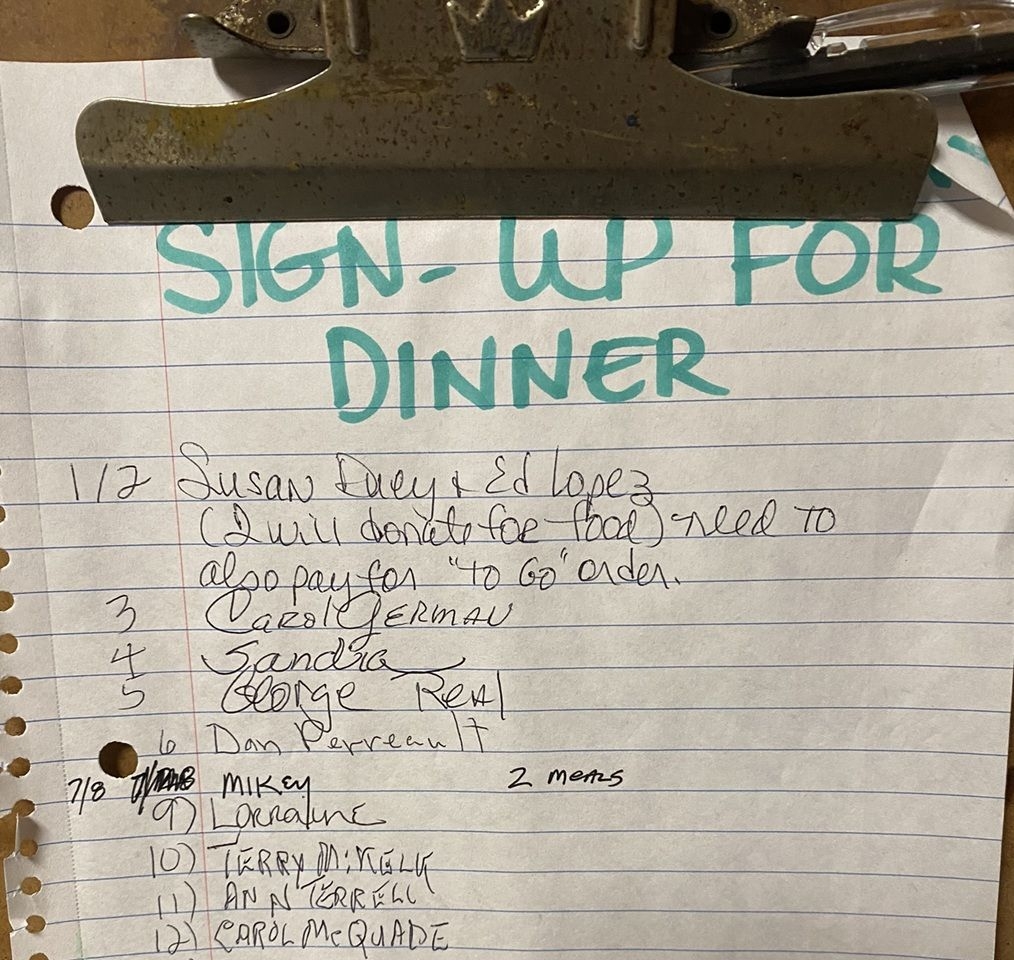 SIGN-UP FOR
DINNER
1/2 Susan Duey & Ed Lopez
(I will donate for food) need to
also pay for "to Go" order.
3 Carol GERMAN
4 Sandra
5 George Real
6 Dan Perreault
7/8 MIKEY 2 MEALS
9) Lorraine
10) TERRY
11) ANN TERRELL
12) CAROL McQUADE